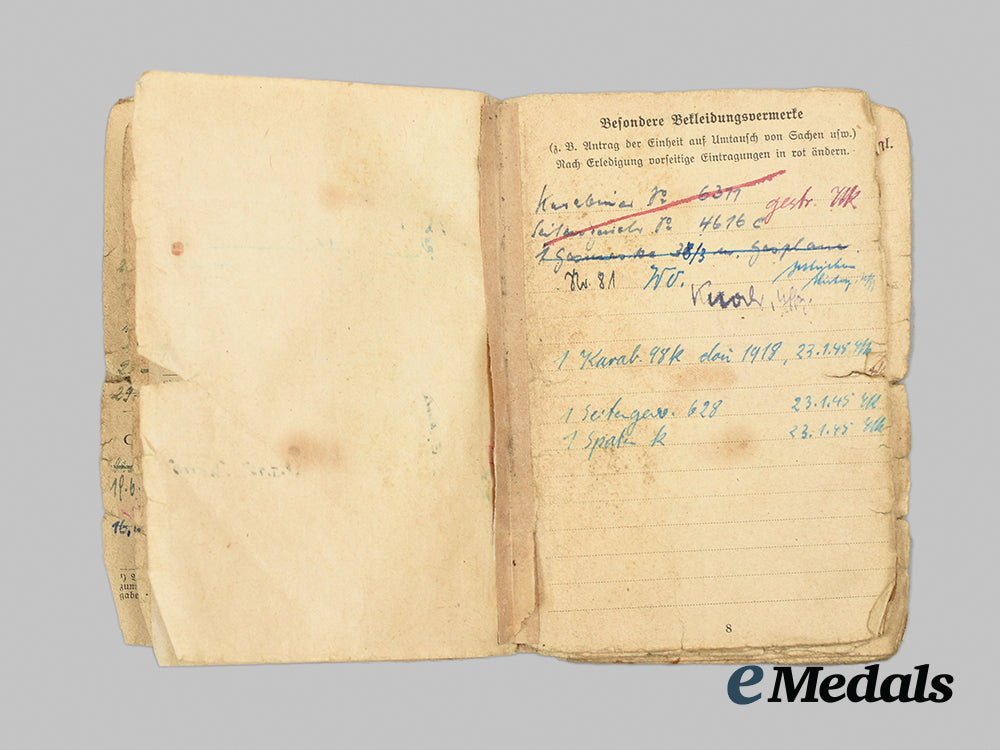 Besondere Bekleidungsvermerke
(z. B. Antrag der Einheit auf Umtausch von Sachen usw.)
Nach Erledigung vorseitige Eintragungen in rot ändern.
Karabiner No 6311
gestr.
Seitengewehr No 4616 c
1 Gasmaske 38/3 m. Gasplane.
Nr. 81
1 Karab. 98k dou 1918, 23.1.45
1 Seitengew. 628 23.1.45
1 Spaten k 23.1.45
8
29.
19.6.
16.
zum
gabe
gl.
eMedals